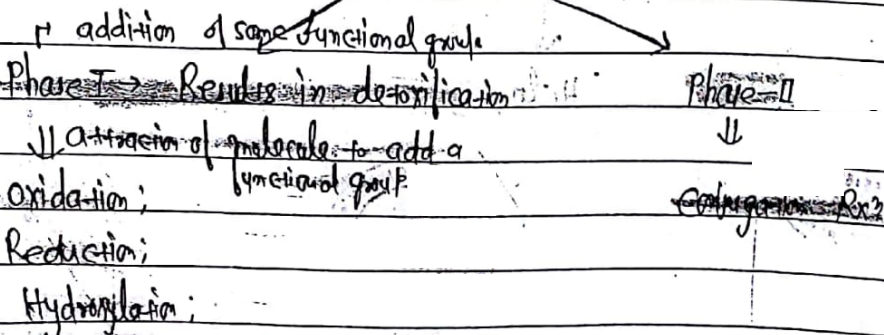 addition of some functional group
Phase I → Results in detoxification
Phase-II
⇓ attraction of molecule to add a
functional group.
⇓
Oxidation;
Conjugation Rxn
Reduction;
Hydroxylation;